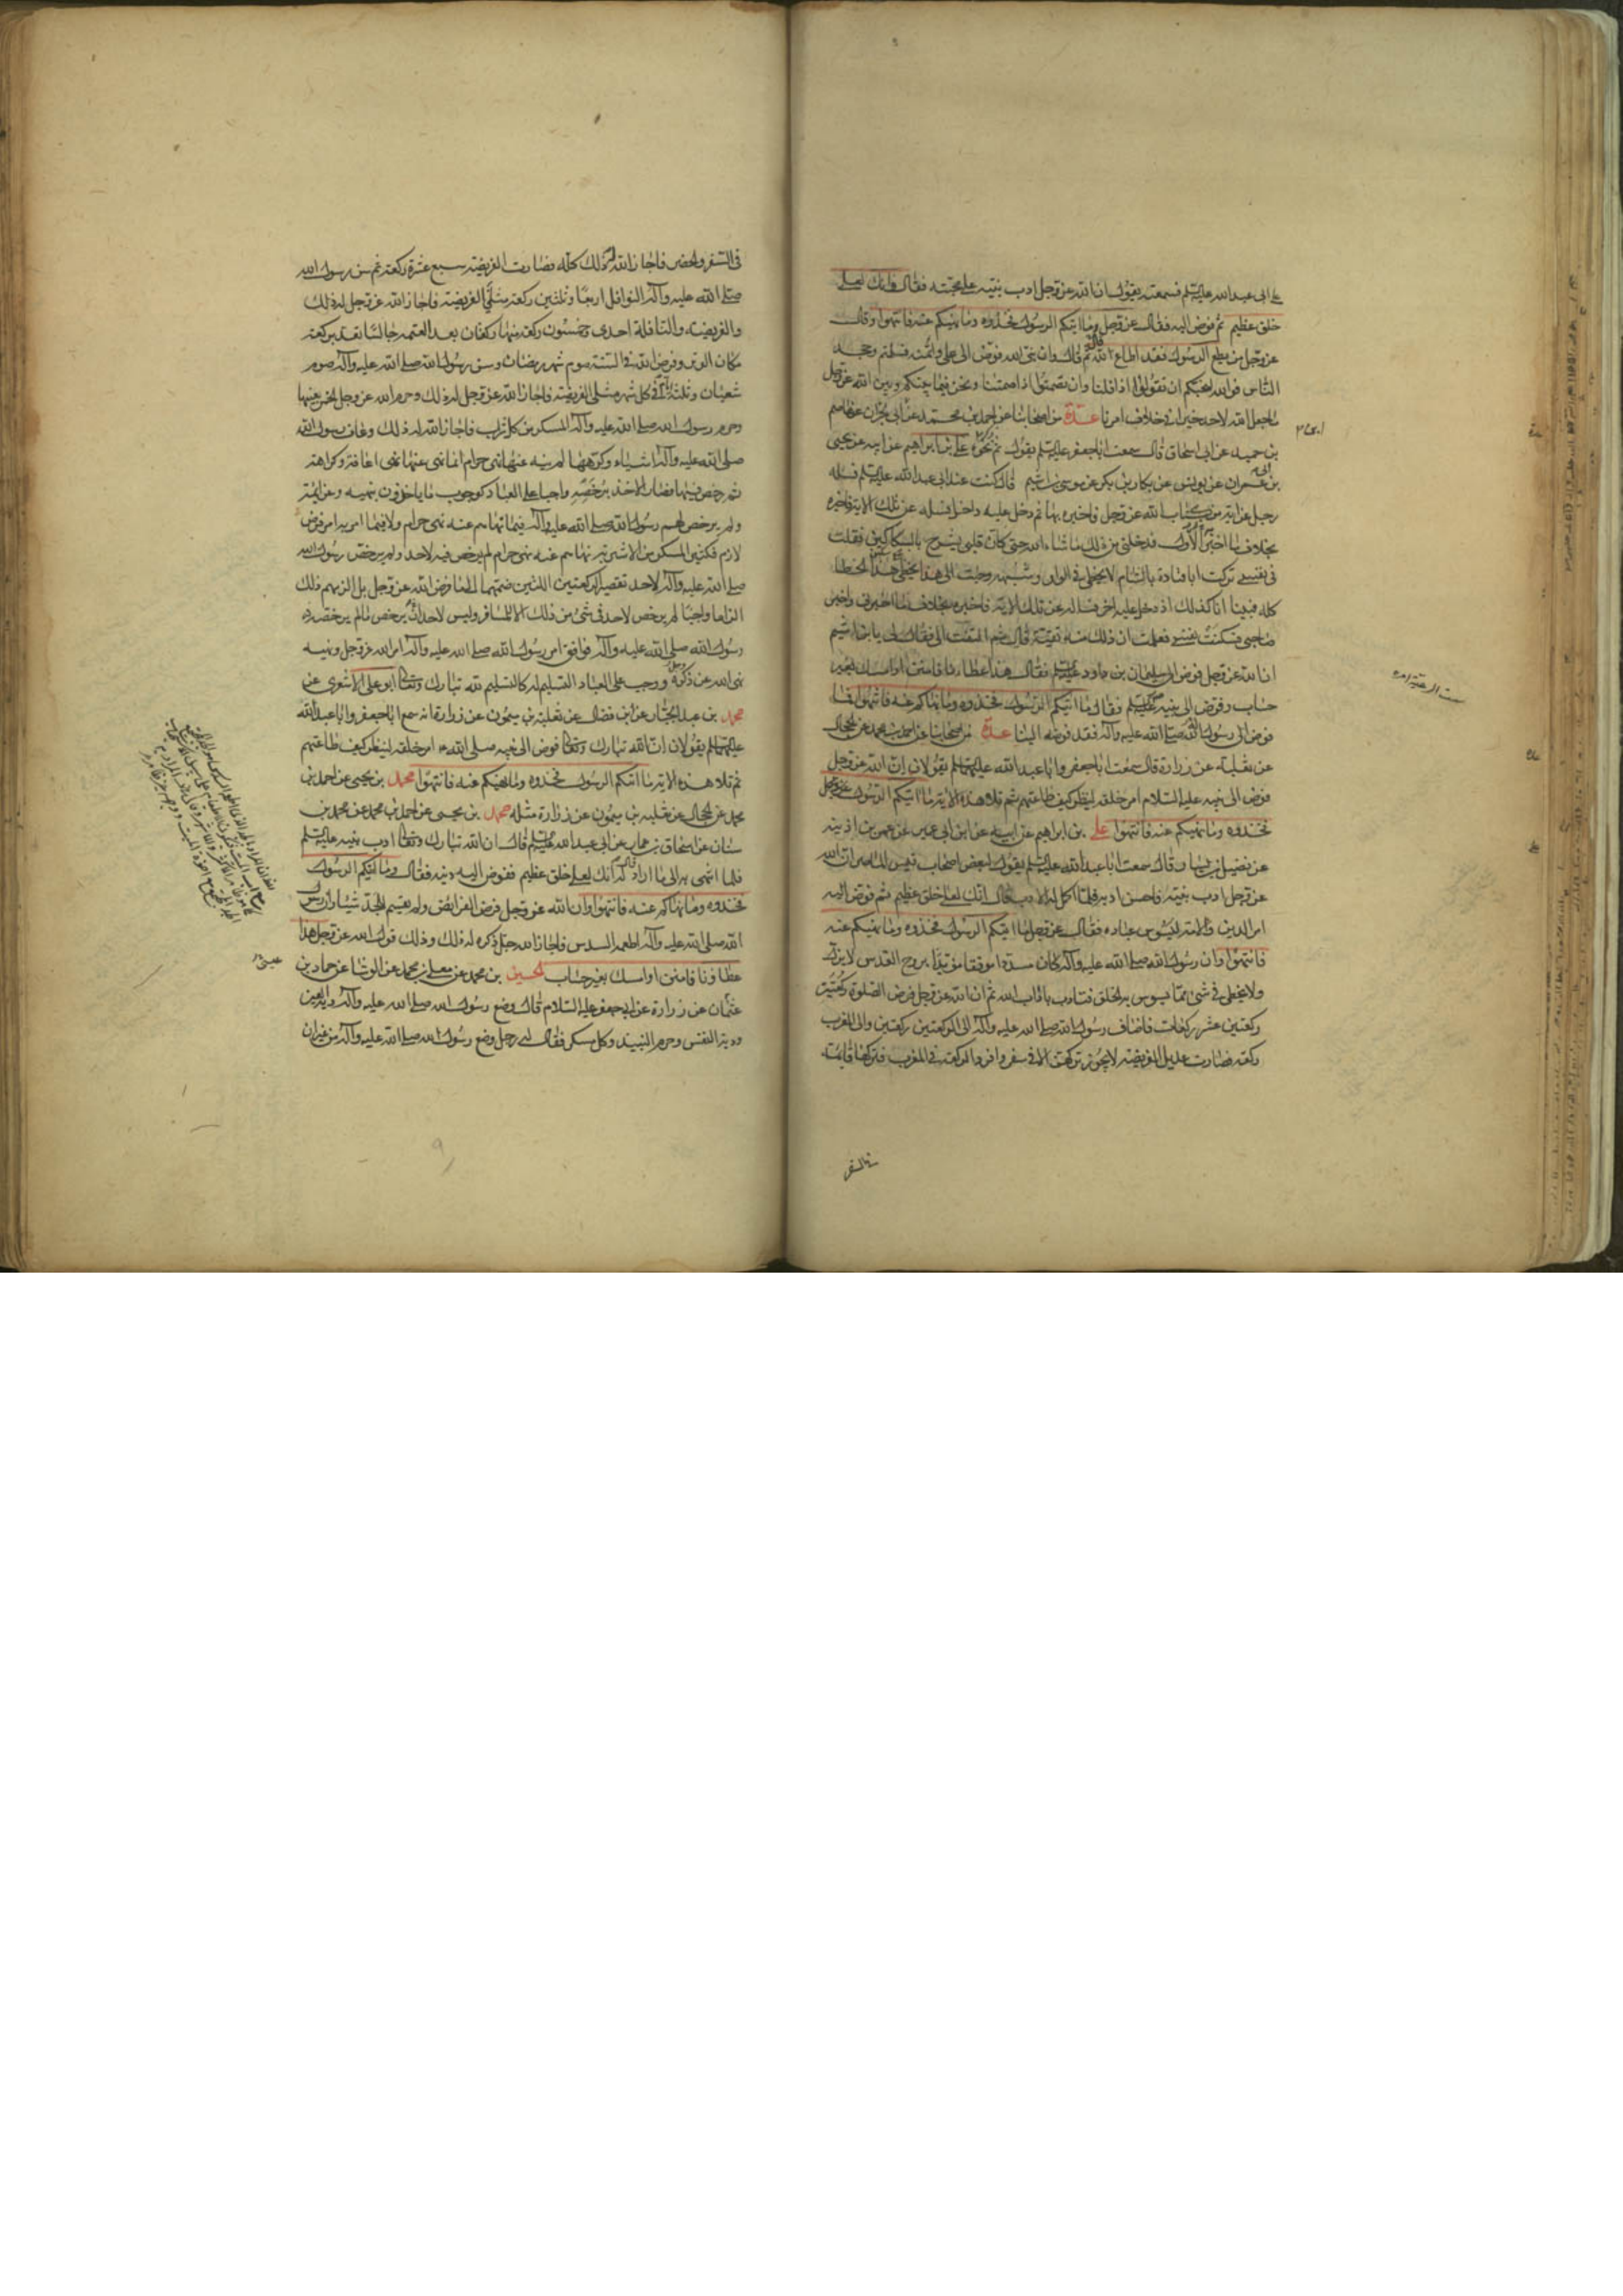 على ابى عبد الله عليه السلم فسمعته يقول ان الله عز وجل ادب نبيه على محبته فقال وانك لعلى
خلق عظيم ثم فوض اليه فقال عز وجل وما اتيكم الرسول فخذوه وما نهيكم عنه فانتهوا وقال
عز وجل من يطع الرسول فقد اطاع الله ثم قال وان نبى الله فوض الى على وائتمنه فسلمتم وجحد
الناس فوالله لنحبكم ان تقولوا اذا قلنا وان تصمتوا اذا صمتنا ونحن فيما بينكم وبين الله عز وجل
ما جعل الله لاحد خيرا فى خلاف امرنا عدة من اصحابنا عن احمد بن محمد عن ابن ابى نجران عن عاصم
بن حميد عن ابى اسحاق قال سمعت ابا جعفر عليه السلم يقول ثم ذكر نحوه على بن ابراهيم عن ابيه عن يحيى
بن ابى عمران عن يونس عن بكار بن بكر عن موسى بن اشيم قال كنت عند ابى عبد الله عليه السلم فسأله
رجل عن اية من كتاب الله عز وجل فاخبره بها ثم دخل عليه داخل فسأله عن تلك الاية فاخبره
بخلاف ما اخبر الاول فدخلنى من ذلك ما شاء الله حتى كان قلبى يشرح بالسكاكين فقلت
فى نفسى تركت ابا قتادة بالشام لا يخطى فى الواو وشبهه وجئت الى هذا يخطى هذا الخطا
كله فبينا انا كذلك اذ دخل عليه اخر فساله عن تلك الاية فاخبره بخلاف ما اخبرنى واخبر
صاحبى فسكنت نفسى فعلمت ان ذلك منه تقية قال ثم التفت الى فقال لى يا بن اشيم
ان الله عز وجل فوض الى سليمان بن داود عليه السلم فقال هذا عطاءنا فامنن او امسك بغير
حساب وفوض الى نبيه فقال ما اتيكم الرسول فخذوه وما نهاكم عنه فانتهوا فما
فوض الى رسول الله صلى الله عليه وآله فقد فوضه الينا عدة من اصحابنا عن احمد بن محمد عن الحجال
عن ثعلبة عن زرارة قال سمعت ابا جعفر وابا عبد الله عليهما السلم يقولان ان الله عز وجل
فوض الى نبيه عليه السلام امر خلقه لينظر كيف طاعتهم ثم تلا هذه الاية ما اتيكم الرسول
فخذوه وما نهيكم عنه فانتهوا على بن ابراهيم عن ابيه عن ابن ابى عمير عن عمر بن اذينه
عن فضيل بن يسار قال سمعت ابا عبد الله عليه السلم يقول لبعض اصحاب قيس الماصر ان الله
عز وجل ادب نبيه فاحسن ادبه فلما اكمل له الادب قال انك لعلى خلق عظيم ثم فوض اليه
امر الدين والامة ليسوس عباده فقال عز وجل ما اتيكم الرسول فخذوه وما نهيكم عنه
فانتهوا وان رسول الله صلى الله عليه وآله كان مسددا موفقا مؤيدا بروح القدس لا يزل
ولا يخطى فى شئ مما يسوس به الخلق فتادب باداب الله ثم ان الله عز وجل فرض الصلوة ركعتين
ركعتين عشر ركعات فاضاف رسول الله صلى الله عليه وآله الى الركعتين ركعتين والى المغرب
ركعة فصارت عديل الفريضة لا يجوز تركهن الا فى سفر وافرد الركعة فى المغرب فتركها قائمة
فى السفر
فى السفر والحضر فاجاز الله له ذلك كله فصارت الفريضة سبع عشرة ركعة ثم سن رسول الله
صلى الله عليه وآله النوافل اربعا وثلثين ركعة مثلى الفريضة فاجاز الله عز وجل له ذلك
والفريضة والنافلة احدى وخمسون ركعة منها ركعتان بعد العتمة جالسا تعد بركعة
مكان الوتر وفرض الله فى السنة صوم شهر رمضان وسن رسول الله صلى الله عليه وآله صوم
شعبان وثلثة ايام فى كل شهر مثلى الفريضة فاجاز الله عز وجل له ذلك وحرم الله عز وجل الخمر بعينها
وحرم رسول الله صلى الله عليه وآله المسكر من كل شراب فاجاز الله له ذلك وعاف رسول الله
صلى الله عليه وآله اشياء وكرهها لم ينه عنها نهى حرام انما نهى عنها نهى اعافة وكراهة
ثم رخص فيها فصار الاخذ برخصه واجبا على العباد كوجوب ما ياخذون بنهيه وعزائمه
ولم يرخص لهم رسول الله صلى الله عليه وآله فيما نهاهم عنه نهى حرام ولا فيما امر به امر فرض
لازم فكثير المسكر من الاشربة نهاهم عنه نهى حرام لم يرخص فيه لاحد ولم يرخص رسول الله
صلى الله عليه وآله لاحد تقصير الركعتين اللتين ضمهما الى ما فرض الله عز وجل بل الزمهم ذلك
الزاما واجبا لم يرخص لاحد فى شئ من ذلك الا للمسافر وليس لاحد ان يرخص ما لم يرخصه
رسول الله صلى الله عليه وآله فوافق امر رسول الله صلى الله عليه وآله امر الله عز وجل ونهيه
نهى الله عز ذكره ووجب على العباد التسليم له كالتسليم لله تبارك وتعالى ابو على الاشعرى عن
محمد بن عبد الجبار عن ابن فضال عن ثعلبة بن ميمون عن زرارة انه سمع ابا جعفر وابا عبد الله
عليهما السلم يقولان ان الله تبارك وتعالى فوض الى نبيه صلى الله امر خلقه لينظر كيف طاعتهم
ثم تلا هذه الاية ما اتيكم الرسول فخذوه وما نهيكم عنه فانتهوا محمد بن يحيى عن احمد بن
محمد عن الحجال عن ثعلبه بن ميمون عن زرارة مثله محمد بن يحيى عن احمد بن محمد عن محمد بن
سنان عن اسحاق بن عمار عن ابى عبد الله عليه السلم قال ان الله تبارك وتعالى ادب نبيه عليه السلم
فلما انتهى به الى ما اراد قال له انك لعلى خلق عظيم ففوض اليه دينه فقال وما اتيكم الرسول
فخذوه وما نهاكم عنه فانتهوا وان الله عز وجل فرض الفرايض ولم يقسم للجد شيئا وان رسول
الله صلى الله عليه وآله اطعمه السدس فاجاز الله جل ذكره له ذلك وذلك قول الله عز وجل هذا
عطاؤنا فامنن او امسك بغير حساب الحسين بن محمد عن معلى بن محمد عن الوشا عن حماد بن
عثمان عن زرارة عن ابى جعفر عليه السلام قال وضع رسول الله صلى الله عليه وآله دية العين
ودية النفس وحرم النبيذ وكل مسكر فقال له رجل وضع رسول الله صلى الله عليه وآله من غير ان